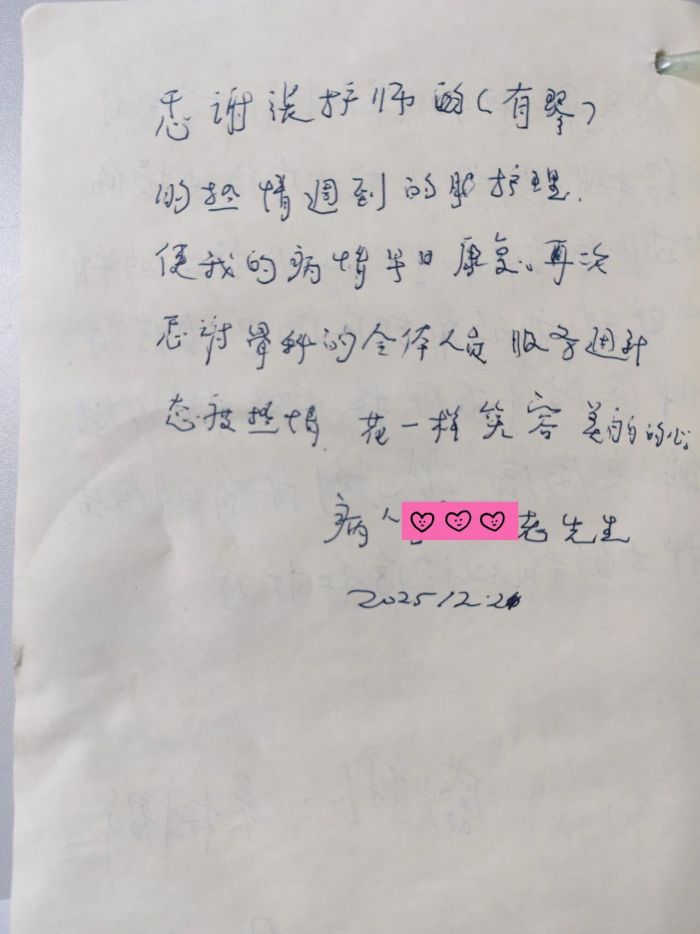 感谢张护师的(有琴)
的热情週到的服护理.
使我的病情早日康复、再次
感谢骨科的全体人员服务週到
态度热情 花一样笑容 美的的心
病人 老先生
2025 12.2